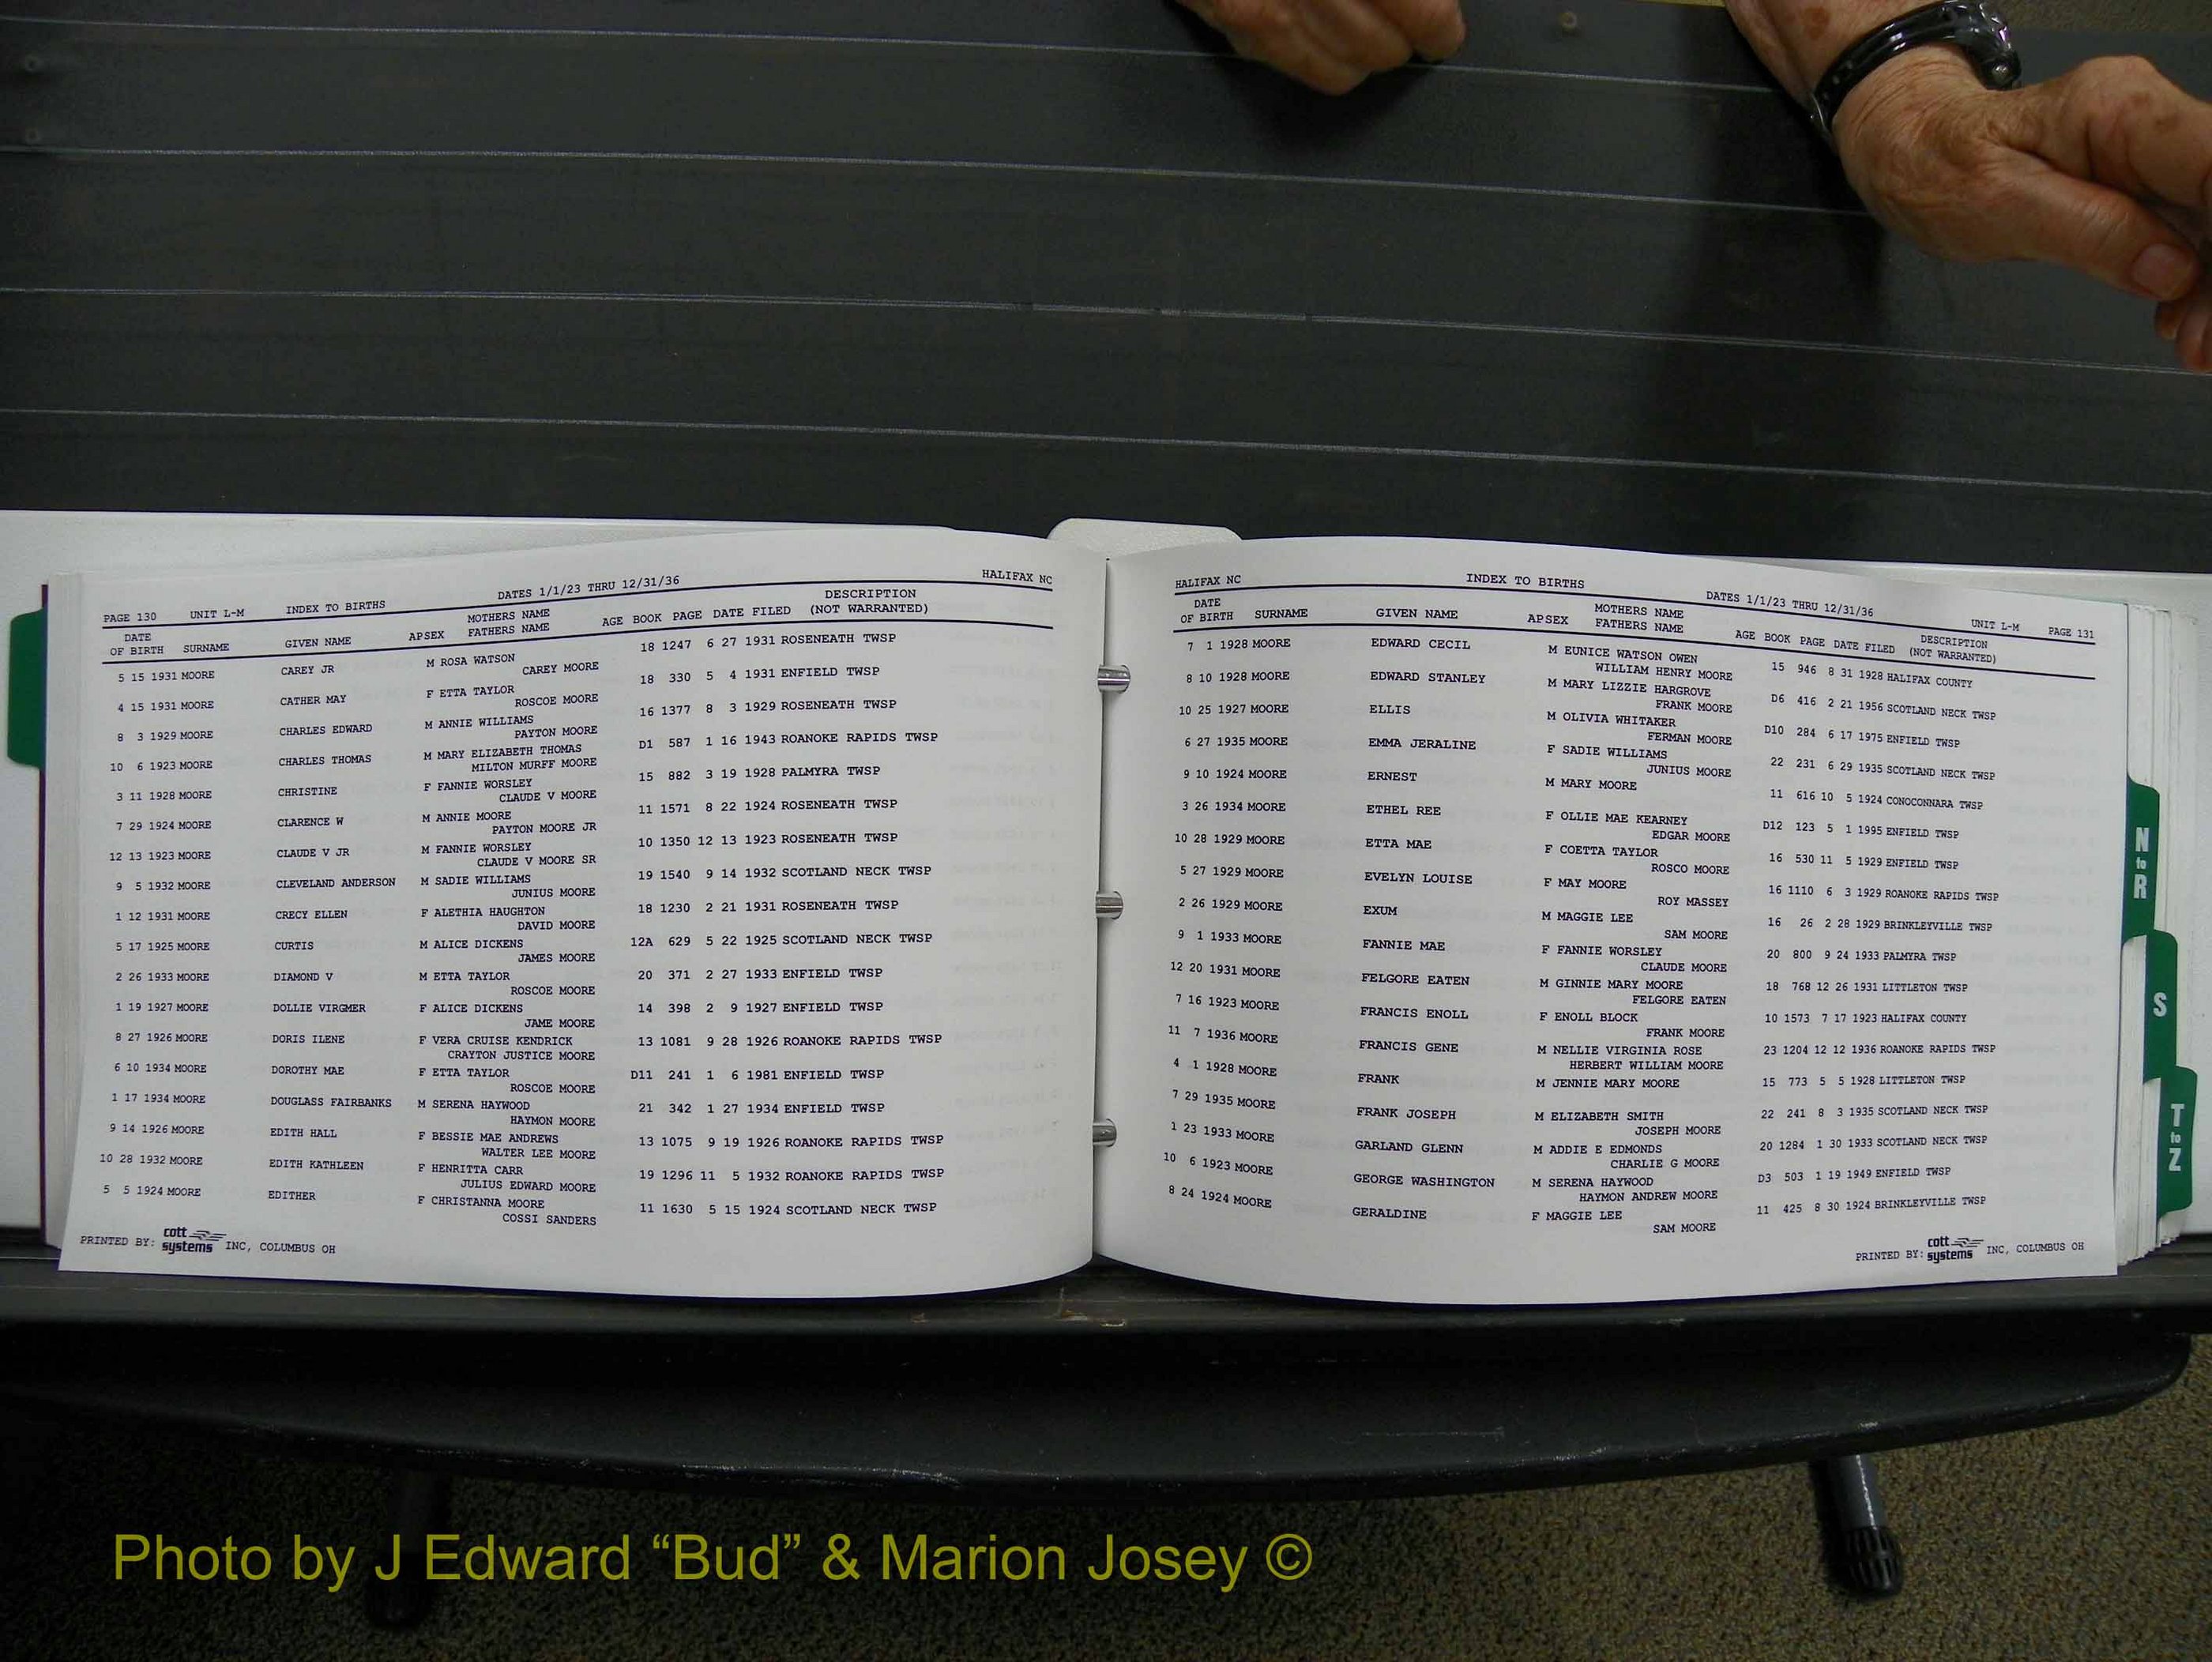 PAGE 130 UNIT L-M INDEX TO BIRTHS DATES 1/1/23 THRU 12/31/36 HALIFAX NC
DATE OF BIRTH SURNAME GIVEN NAME AP SEX MOTHERS NAME FATHERS NAME AGE BOOK PAGE DATE FILED DESCRIPTION (NOT WARRANTED)
5 15 1931 MOORE CAREY JR M ROSA WATSON 18 1247 6 27 1931 ROSENEATH TWSP
CAREY MOORE
4 15 1931 MOORE CATHER MAY F ETTA TAYLOR 18 330 5 4 1931 ENFIELD TWSP
ROSCOE MOORE
8 3 1929 MOORE CHARLES EDWARD M ANNIE WILLIAMS 16 1377 8 3 1929 ROSENEATH TWSP
PAYTON MOORE
10 6 1923 MOORE CHARLES THOMAS M MARY ELIZABETH THOMAS D1 587 1 16 1943 ROANOKE RAPIDS TWSP
MILTON MURFF MOORE
3 11 1928 MOORE CHRISTINE F FANNIE WORSLEY 15 882 3 19 1928 PALMYRA TWSP
CLAUDE V MOORE
7 29 1924 MOORE CLARENCE W M ANNIE MOORE 11 1571 8 22 1924 ROSENEATH TWSP
PAYTON MOORE JR
12 13 1923 MOORE CLAUDE V JR M FANNIE WORSLEY 10 1350 12 13 1923 ROSENEATH TWSP
CLAUDE V MOORE SR
9 5 1932 MOORE CLEVELAND ANDERSON M SADIE WILLIAMS 19 1540 9 14 1932 SCOTLAND NECK TWSP
JUNIUS MOORE
1 12 1931 MOORE CRECY ELLEN F ALETHIA HAUGHTON 18 1230 2 21 1931 ROSENEATH TWSP
DAVID MOORE
5 17 1925 MOORE CURTIS M ALICE DICKENS 12A 629 5 22 1925 SCOTLAND NECK TWSP
JAMES MOORE
2 26 1933 MOORE DIAMOND V M ETTA TAYLOR 20 371 2 27 1933 ENFIELD TWSP
ROSCOE MOORE
1 19 1927 MOORE DOLLIE VIRGMER F ALICE DICKENS 14 398 2 9 1927 ENFIELD TWSP
JAME MOORE
8 27 1926 MOORE DORIS ILENE F VERA CRUISE KENDRICK 13 1081 9 28 1926 ROANOKE RAPIDS TWSP
CRAYTON JUSTICE MOORE
6 10 1934 MOORE DOROTHY MAE F ETTA TAYLOR D11 241 1 6 1981 ENFIELD TWSP
ROSCOE MOORE
1 17 1934 MOORE DOUGLASS FAIRBANKS M SERENA HAYWOOD 21 342 1 27 1934 ENFIELD TWSP
HAYMON MOORE
9 14 1926 MOORE EDITH HALL F BESSIE MAE ANDREWS 13 1075 9 19 1926 ROANOKE RAPIDS TWSP
WALTER LEE MOORE
10 28 1932 MOORE EDITH KATHLEEN F HENRITTA CARR 19 1296 11 5 1932 ROANOKE RAPIDS TWSP
JULIUS EDWARD MOORE
5 5 1924 MOORE EDITHER F CHRISTANNA MOORE 11 1630 5 15 1924 SCOTLAND NECK TWSP
COSSI SANDERS
PRINTED BY: cott systems INC, COLUMBUS OH
HALIFAX NC INDEX TO BIRTHS DATES 1/1/23 THRU 12/31/36 UNIT L-M PAGE 131
DATE OF BIRTH SURNAME GIVEN NAME AP SEX MOTHERS NAME FATHERS NAME AGE BOOK PAGE DATE FILED DESCRIPTION (NOT WARRANTED)
7 1 1928 MOORE EDWARD CECIL M EUNICE WATSON OWEN 15 946 8 31 1928 HALIFAX COUNTY
WILLIAM HENRY MOORE
8 10 1928 MOORE EDWARD STANLEY M MARY LIZZIE HARGROVE D6 416 2 21 1956 SCOTLAND NECK TWSP
FRANK MOORE
10 25 1927 MOORE ELLIS M OLIVIA WHITAKER D10 284 6 17 1975 ENFIELD TWSP
FERMAN MOORE
6 27 1935 MOORE EMMA JERALINE F SADIE WILLIAMS 22 231 6 29 1935 SCOTLAND NECK TWSP
JUNIUS MOORE
9 10 1924 MOORE ERNEST M MARY MOORE 11 616 10 5 1924 CONOCONNARA TWSP
3 26 1934 MOORE ETHEL REE F OLLIE MAE KEARNEY D12 123 5 1 1995 ENFIELD TWSP
EDGAR MOORE
10 28 1929 MOORE ETTA MAE F COETTA TAYLOR 16 530 11 5 1929 ENFIELD TWSP
ROSCO MOORE
5 27 1929 MOORE EVELYN LOUISE F MAY MOORE 16 1110 6 3 1929 ROANOKE RAPIDS TWSP
ROY MASSEY
2 26 1929 MOORE EXUM M MAGGIE LEE 16 26 2 28 1929 BRINKLEYVILLE TWSP
SAM MOORE
9 1 1933 MOORE FANNIE MAE F FANNIE WORSLEY 20 800 9 24 1933 PALMYRA TWSP
CLAUDE MOORE
12 20 1931 MOORE FELGORE EATEN M GINNIE MARY MOORE 18 768 12 26 1931 LITTLETON TWSP
FELGORE EATEN
7 16 1923 MOORE FRANCIS ENOLL F ENOLL BLOCK 10 1573 7 17 1923 HALIFAX COUNTY
FRANK MOORE
11 7 1936 MOORE FRANCIS GENE M NELLIE VIRGINIA ROSE 23 1204 12 12 1936 ROANOKE RAPIDS TWSP
HERBERT WILLIAM MOORE
4 1 1928 MOORE FRANK M JENNIE MARY MOORE 15 773 5 5 1928 LITTLETON TWSP
7 29 1935 MOORE FRANK JOSEPH M ELIZABETH SMITH 22 241 8 3 1935 SCOTLAND NECK TWSP
JOSEPH MOORE
1 23 1933 MOORE GARLAND GLENN M ADDIE E EDMONDS 20 1284 1 30 1933 SCOTLAND NECK TWSP
CHARLIE G MOORE
10 6 1923 MOORE GEORGE WASHINGTON M SERENA HAYWOOD D3 503 1 19 1949 ENFIELD TWSP
HAYMON ANDREW MOORE
8 24 1924 MOORE GERALDINE F MAGGIE LEE 11 425 8 30 1924 BRINKLEYVILLE TWSP
SAM MOORE
PRINTED BY: cott systems INC, COLUMBUS OH
N to R
S
T to Z
Photo by J Edward “Bud” & Marion Josey ©